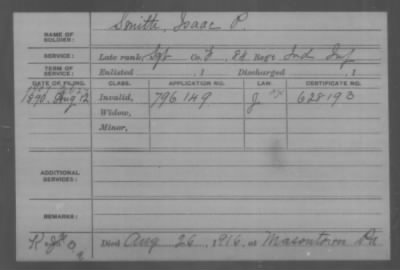 Smith, Isaac P.
NAME OF SOLDIER:
SERVICE: Late rank, Sgt Co. F, 84 Reg't Ind Inf
TERM OF SERVICE: Enlisted , 1 Discharged , 1
DATE OF FILING. CLASS. APPLICATION NO. LAW. CERTIFICATE NO.
1890, Aug 12 Invalid, 796149 J. 628193
Widow,
Minor,
ADDITIONAL SERVICES:
REMARKS:
Died Aug 26, 1916, at Masontown Pa